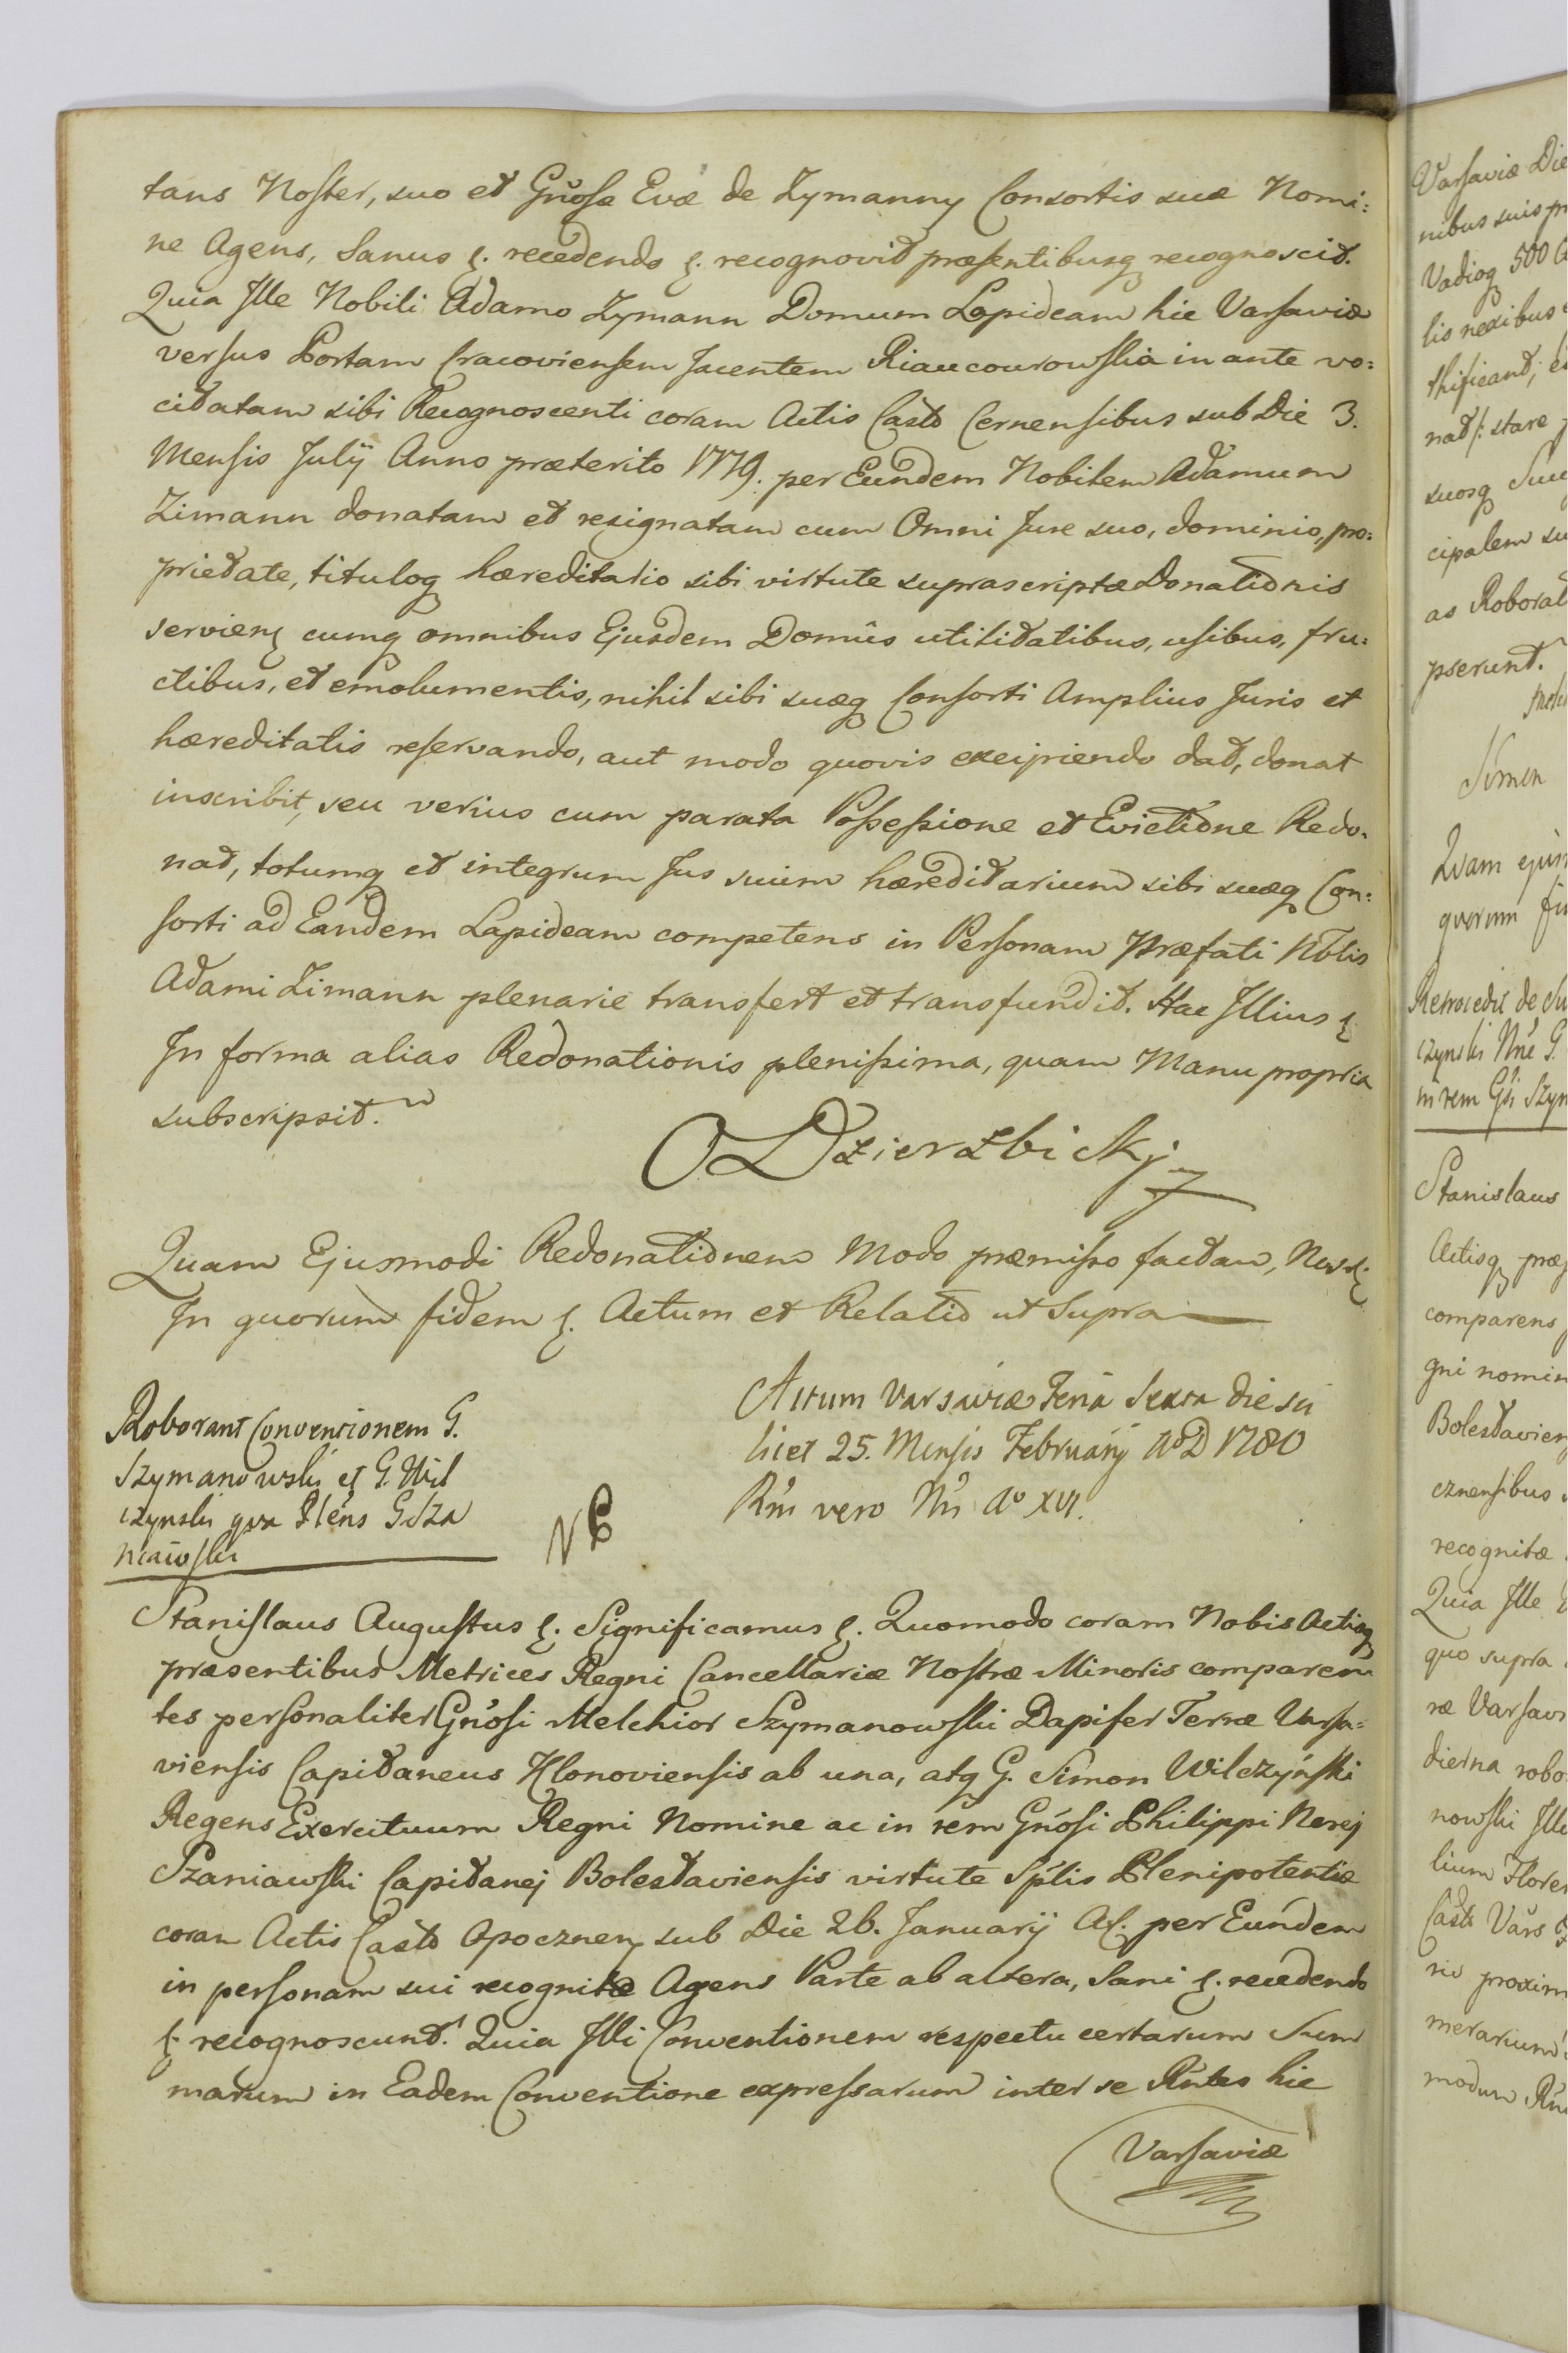 tans Noster, suo et Gnosæ Evæ de Zymanny Consortis suæ Nomi:
ne Agens, Sanus &. recedendo &. recognovit præsentibusq recognoscit.
Quia Ille Nobili Adamo Zymann Domum Lapideam hic Varsaviæ
versus Portam Cracoviensem Jacentem Riaucourowska in ante vo:
citatam sibi Recognoscenti coram Actis Castr Cernensibus sub Die 3.
Mensis Julij Anno præterito 1779. per Eundem Nobilem Adamum
Zimann donatam et resignatam cum Omni Jure suo, dominio, pro:
prietate, tituloq hæreditario sibi virtute suprascriptæ Donationis
servien cumq omnibus Ejusdem Domûs utilitatibus, usibus, fru:
ctibus, et emolumentis, nihil sibi suæq Consorti Amplius Juris et
hæreditatis reservando, aut modo quovis excipiendo dat, donat
inscribit, seu verius cum parata Possessione et Evictione Redo.
nat, totumq et integrum Jus suum hæreditarium sibi suæq Con:
sorti ad Eandem Lapideam competens in Personam Præfati Nblis
Adami Zimann plenarie transfert et transfundit. Hac Illius &
In forma alias Redonationis plenissima, quam Manu propria
subscripsit.
O Dzierzbicki
Quam Ejusmodi Redonationem Modo præmisso factam, Nos &
In quorum fidem &. Actum et Relatio ut Supra
Roborant Conventionem G.
Szymanowski et G. Wil
czynski qua Plens G Sza
niawski
NB
Actum Varsaviæ Feria Sexta die sci
licet 25. Mensis Februarij Ao D 1780
Rni vero Nri Ao XVI.
Stanislaus Augustus &. Significamus &. Quomodo coram Nobis Actisq
præsentibus Metrices Regni Cancellariæ Nostræ Minoris comparen
tes personaliter Gnosi Melchior Szymanowski Dapifer Terræ Varsa=
viensis Capitaneus Klonoviensis ab una, atq G. Simon Wilczyński
Regens Exercituum Regni Nomine ac in rem Gnosi Philippi Nerej
Szaniawski Capitanej Bolestaviensis virtute Splis Plenipotentiæ
coram Actis Castr Opocznen sub Die 26. Januarij A. per Eundem
in personam sui recognitæ Agens Parte ab altera, Sani &. recedendo
&. recognoscunt. Quia Illi Conventionem respectu certarum Sum
marum in Eadem Conventione expressarum inter se Rntes hic
Varsaviæ
Varsaviæ Die
nibus suis
Vadioq 500
lis nexibus
thificand,
stare
suosq
cipalem
as Roborat
pserunt.
Simon
Quam ejus
quorum
Retrocedit de
czynski Nne G.
in rem Gsi Szyn
Stanislaus
Actisq præ
comparens
gni nomin
Bolestavien
cznensibus
recognitæ
Quia Ille
quo supra
ræ Varsavi
dierna robo
nowski Ille
lium Floren
Castr Vars
rio proxim
merarium
modum